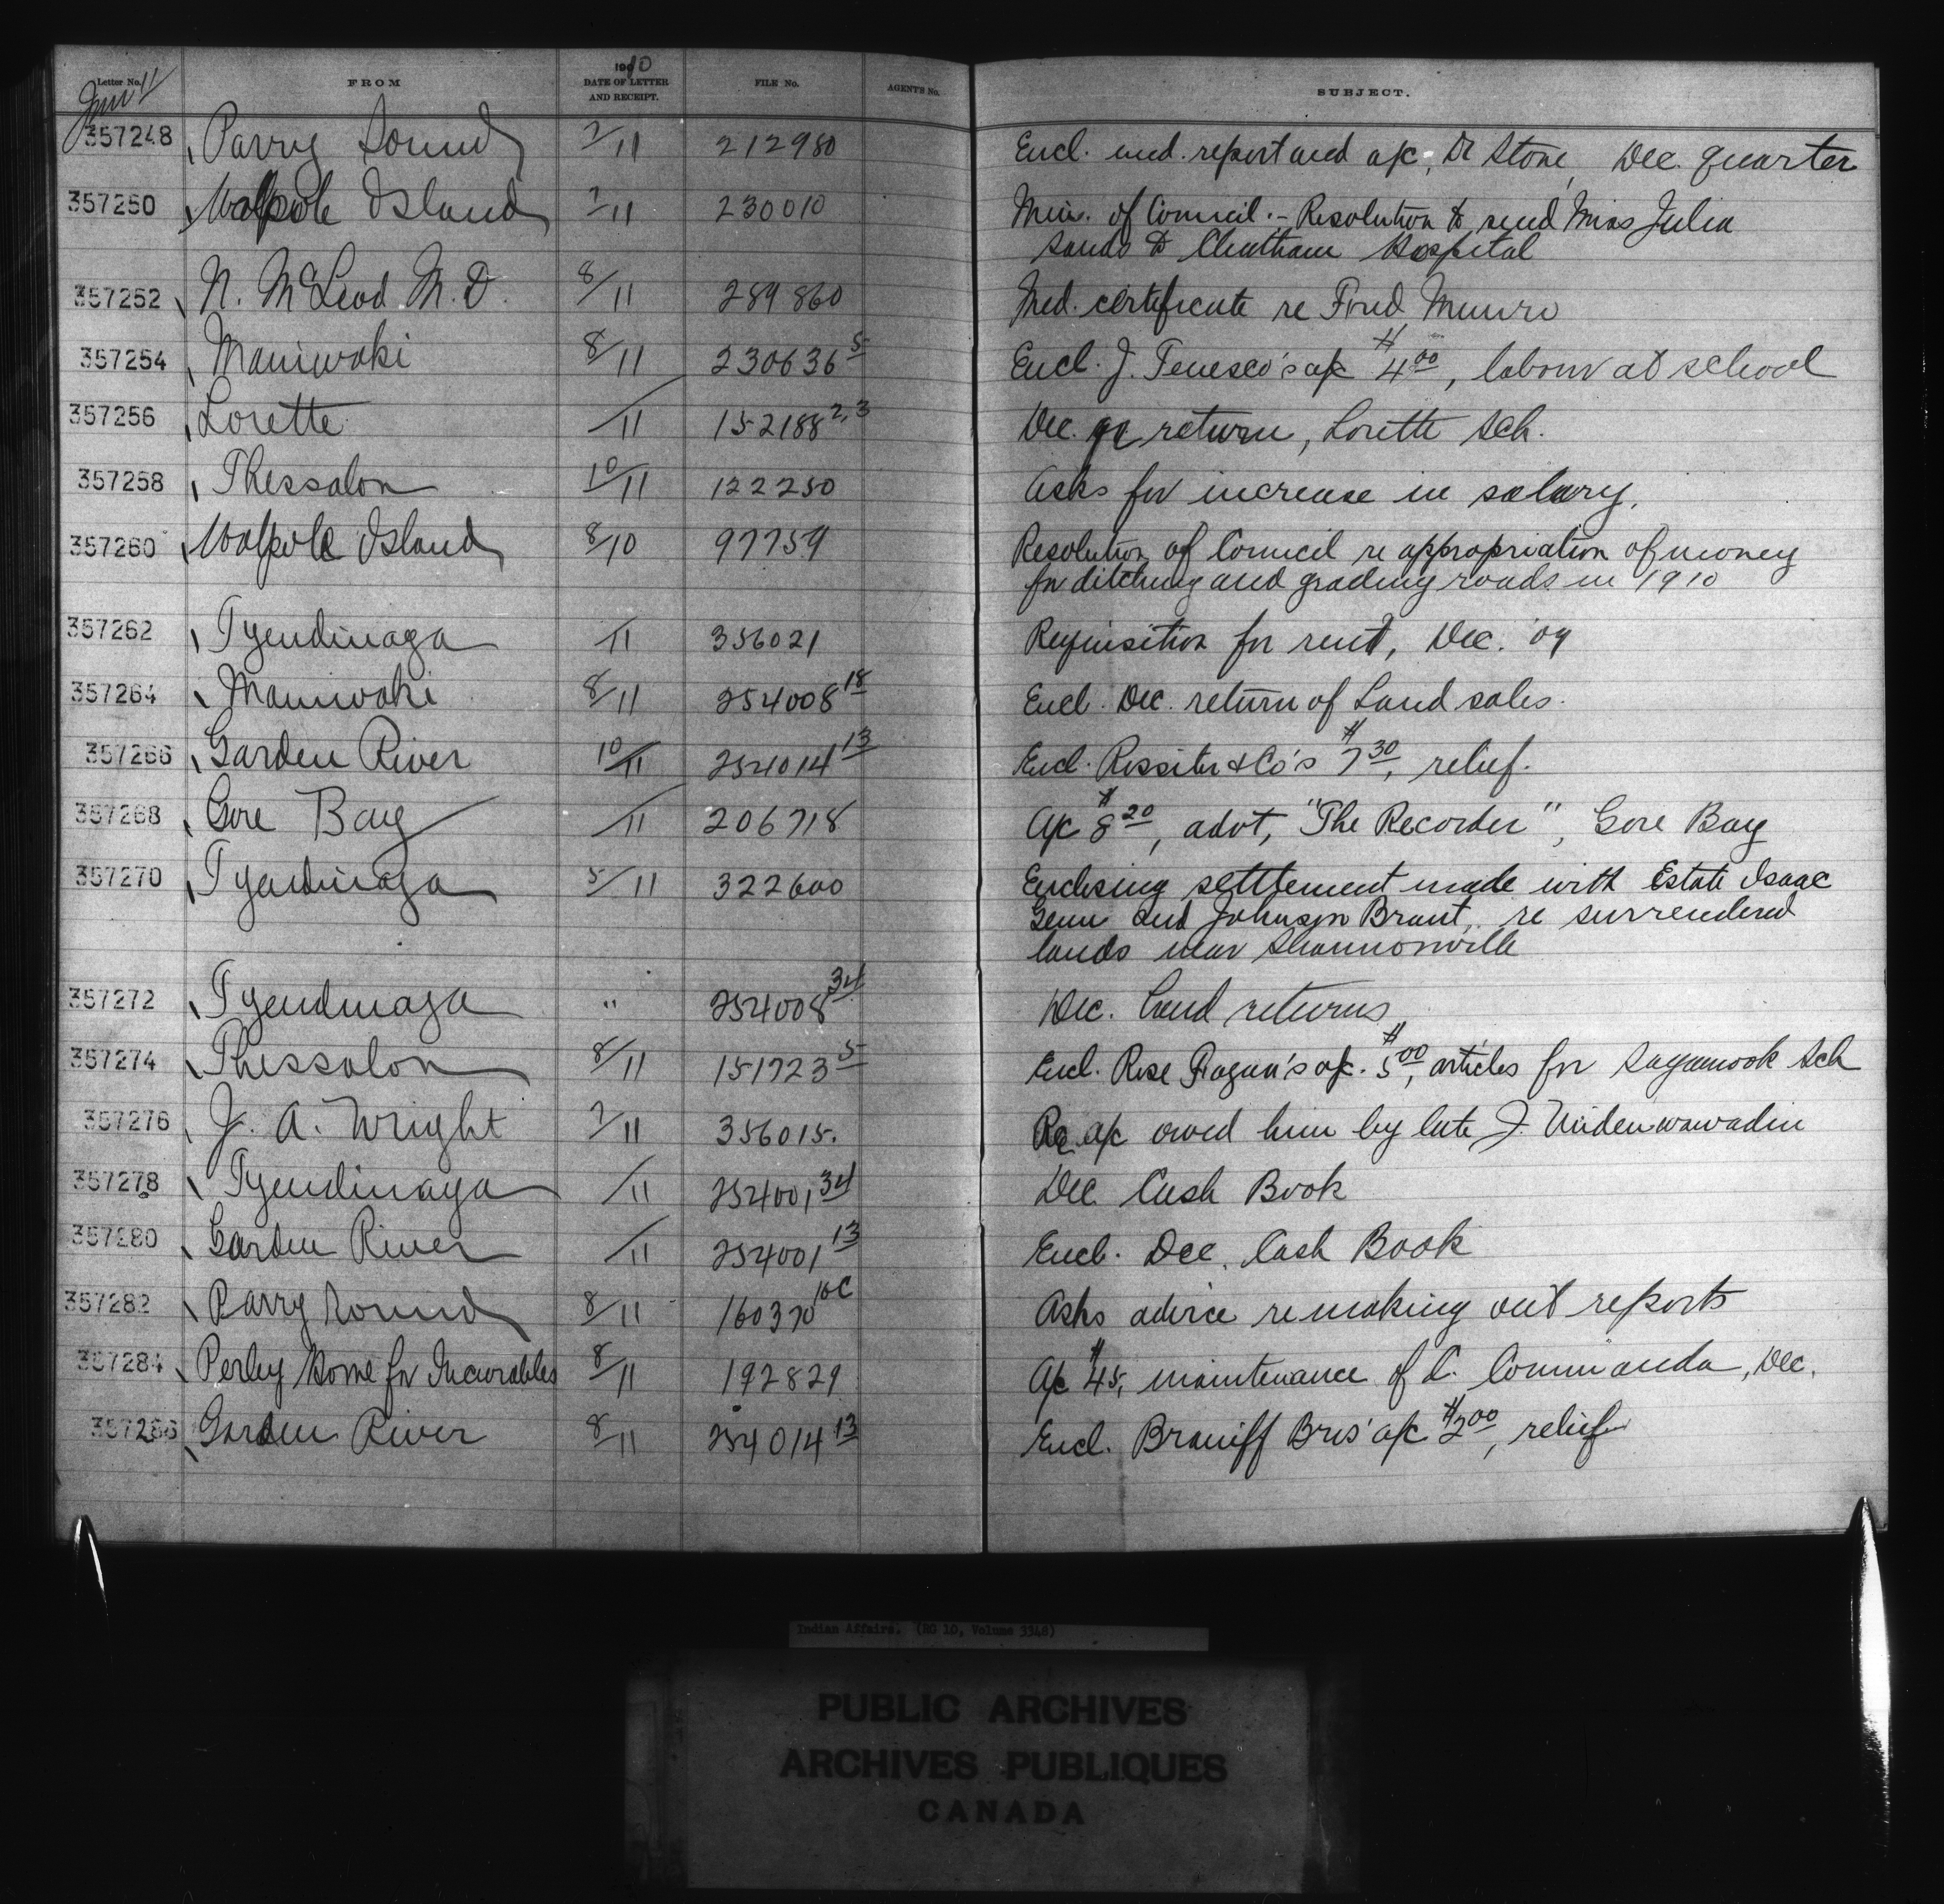 Letter No. FROM 1910 DATE OF LETTER AND RECEIPT. FILE No. AGENTS No. SUBJECT.
Jan 11
357248 Parry Sound 7/11 212980 Encl. med. report and a/c, Dr Stone, Dec. quarter
357250 Walpole Island 7/11 230010 Min. of Council. - Resolution to send Miss Julia
Sands to Chatham Hospital
357252 N. McLeod M.D. 8/11 289860 Med. certificate re Fred Munro
357254 Maniwaki 8/11 230636 5 Encl. J. Tenesco's a/c $4 00, labour at school
357256 Lorette /11 152188 2,3 Dec. qr return, Lorette Sch.
357258 Thessalon 10/11 122250 Asks for increase in salary.
357260 Walpole Island 8/10 97759 Resolution of Council re appropriation of money
for ditching and grading roads in 1910
357262 Tyendinaga /11 356021 Requisition for rent, Dec. '09
357264 Maniwaki 8/11 254008 18 Encl. Dec. return of Land sales.
357266 Garden River 10/11 254014 13 Encl. Rossiter & Co's $7 30, relief.
357268 Gore Bay /11 206718 A/c $8 20, advt, "The Recorder", Gore Bay
357270 Tyendinaga 5/11 322600 Enclosing settlement made with Estate Isaac
and Johnson Brant, re surrendered
lands near Shannonville
357272 Tyendinaga " 254008 34 Dec. Land returns
357274 Thessalon 8/11 151723 5 Encl. Rose Fagan's a/c. $5 00, articles for Sagamook Sch
357276 J. A. Wright 7/11 356015. Re a/c owed him by late J.
357278 Tyendinaga /11 254001 34 Dec Cash Book
357280 Garden River /11 254001 13 Encl. Dec. Cash Book
357282 Parry Sound 8/11 160370 10C Asks advice re making out reports
357284 Perley Home for Incurables 8/11 192829 A/c $45, maintenance of L. Commanda, Dec.
357286 Garden River 8/11 254014 13 Encl. Braniff Bros' a/c $2 00, relief
Indian Affairs. (RG 10, Volume 3348)
PUBLIC ARCHIVES
ARCHIVES PUBLIQUES
CANADA